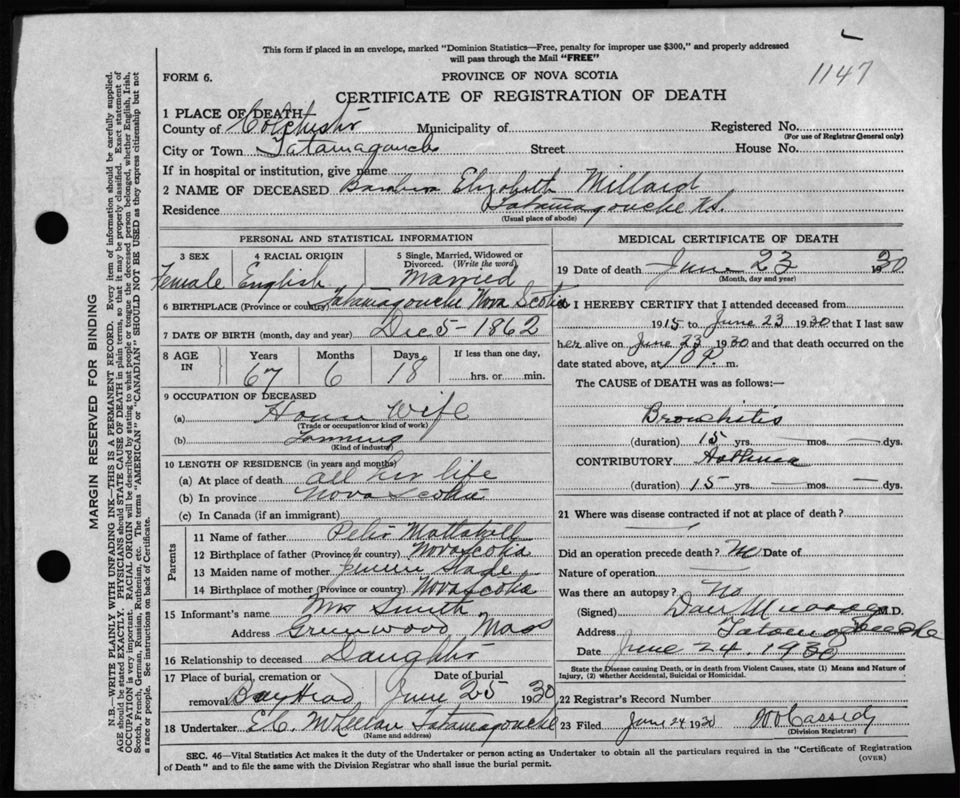 This form if placed in an envelope, marked "Dominion Statistics—Free, penalty for improper use $300," and properly addressed
will pass through the Mail "FREE"
FORM 6.
PROVINCE OF NOVA SCOTIA
1147
CERTIFICATE OF REGISTRATION OF DEATH
1 PLACE OF DEATH
County of Colchester Municipality of Registered No.
(For use of Registrar General only)
City or Town Tatamagouche Street House No.
If in hospital or institution, give name
2 NAME OF DECEASED Barbara Elizabeth Millard
Residence Tatamagouche N.S.
(Usual place of abode)
PERSONAL AND STATISTICAL INFORMATION
3 SEX 4 RACIAL ORIGIN 5 Single, Married, Widowed or
Divorced. (Write the word)
Female English Married
6 BIRTHPLACE (Province or country) Tatamagouche Nova Scotia
7 DATE OF BIRTH (month, day and year) Dec 5 - 1862
8 AGE IN Years Months Days If less than one day,
67 6 18 hrs. or min.
9 OCCUPATION OF DECEASED
(a) House Wife
(Trade or occupation or kind of work)
(b) Farming
(Kind of industry)
10 LENGTH OF RESIDENCE (in years and months)
(a) At place of death all her life
(b) In province Nova Scotia
(c) In Canada (if an immigrant)
Parents
11 Name of father Peter Mattatall
12 Birthplace of father (Province or country) Nova Scotia
13 Maiden name of mother Slade
14 Birthplace of mother (Province or country) Nova Scotia
15 Informant's name Mrs Smith
Address Greenwood, Mass
16 Relationship to deceased Daughter
17 Place of burial, cremation or Date of burial
removal Bay Head June 25 1930
18 Undertaker E.C. McLellan Tatamagouche
(Name and address)
MEDICAL CERTIFICATE OF DEATH
19 Date of death June 23 1930
(Month, day and year)
I HEREBY CERTIFY that I attended deceased from
1915 to June 23 1930 that I last saw
her alive on June 23 1930 and that death occurred on the
date stated above, at 10 P. m.
The CAUSE OF DEATH was as follows:—
Bronchitis
(duration) 15 yrs. — mos. — dys.
CONTRIBUTORY Asthma
(duration) 15 yrs. — mos. — dys.
21 Where was disease contracted if not at place of death?
Did an operation precede death? No Date of
Nature of operation —
Was there an autopsy? No
(Signed) Dan Murray M.D.
Address Tatamagouche
Date June 24. 1930
State the Disease causing Death, or in death from Violent Causes, state (1) Means and Nature of
Injury, (2) whether Accidental, Suicidal or Homicidal.
22 Registrar's Record Number
23 Filed June 24 1930 Cassidy
(Division Registrar)
SEC. 46—Vital Statistics Act makes it the duty of the Undertaker or person acting as Undertaker to obtain all the particulars required in the "Certificate of Registration
of Death" and to file the same with the Division Registrar who shall issue the burial permit.
(OVER)
MARGIN RESERVED FOR BINDING
N.B.—WRITE PLAINLY WITH UNFADING INK—THIS IS A PERMANENT RECORD. Every item of information should be carefully supplied.
AGE should be stated EXACTLY. PHYSICIANS should STATE CAUSE OF DEATH in plain terms, so that it may be properly classified. Exact statement of
OCCUPATION is very important. RACIAL ORIGIN will be described by stating to what people or tongue the deceased person belonged, whether English, Irish,
Scotch, French, German, Russian, Ruthenian, etc. The terms "AMERICAN" or "CANADIAN" SHOULD NOT BE USED as they express citizenship but not
a race or people. See instructions on back of Certificate.